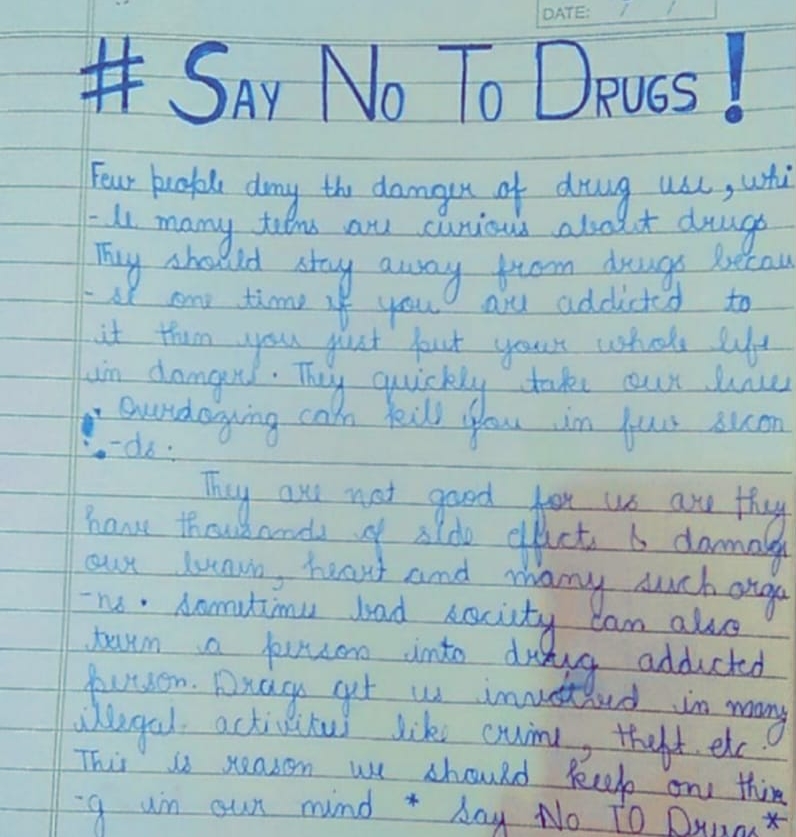 DATE: / /
# SAY NO TO DRUGS!
Few people deny the danger of drug use, whi
-le many teens are curious about drugs
They should stay away from drugs becau
-se one time if you are addicted to
it then you just put your whole life
in danger. They quickly take our lives
. Overdozing can kill you in few secon
-ds.
They are not good for us are they
have thousands of side effects & damage
our brain, heart and many such orga
-ns. Sometimes bad society can also
turn a person into drug addicted
person. Drugs get us involved in many
illegal activities like crime, theft etc.
This is reason we should keep one thin
-g in our mind * Say No TO Drugs*